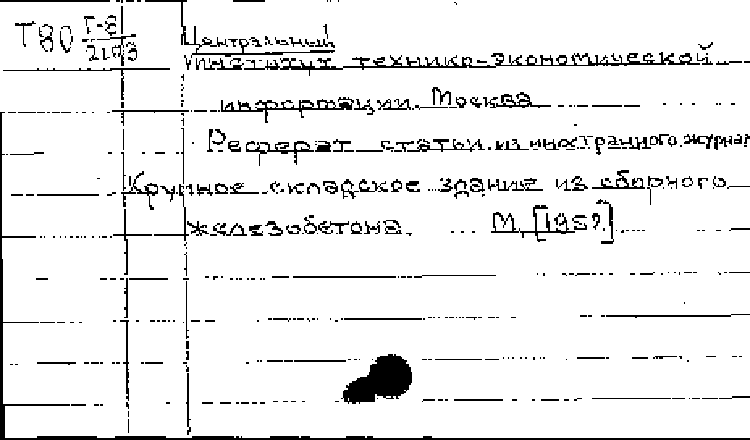 Т80 Г-8
Центральный
институт технико-экономической
информации. Москва
Реферат статьи из иностранного журнал
Крупное складское здание из сборного
железобетона. ... М,